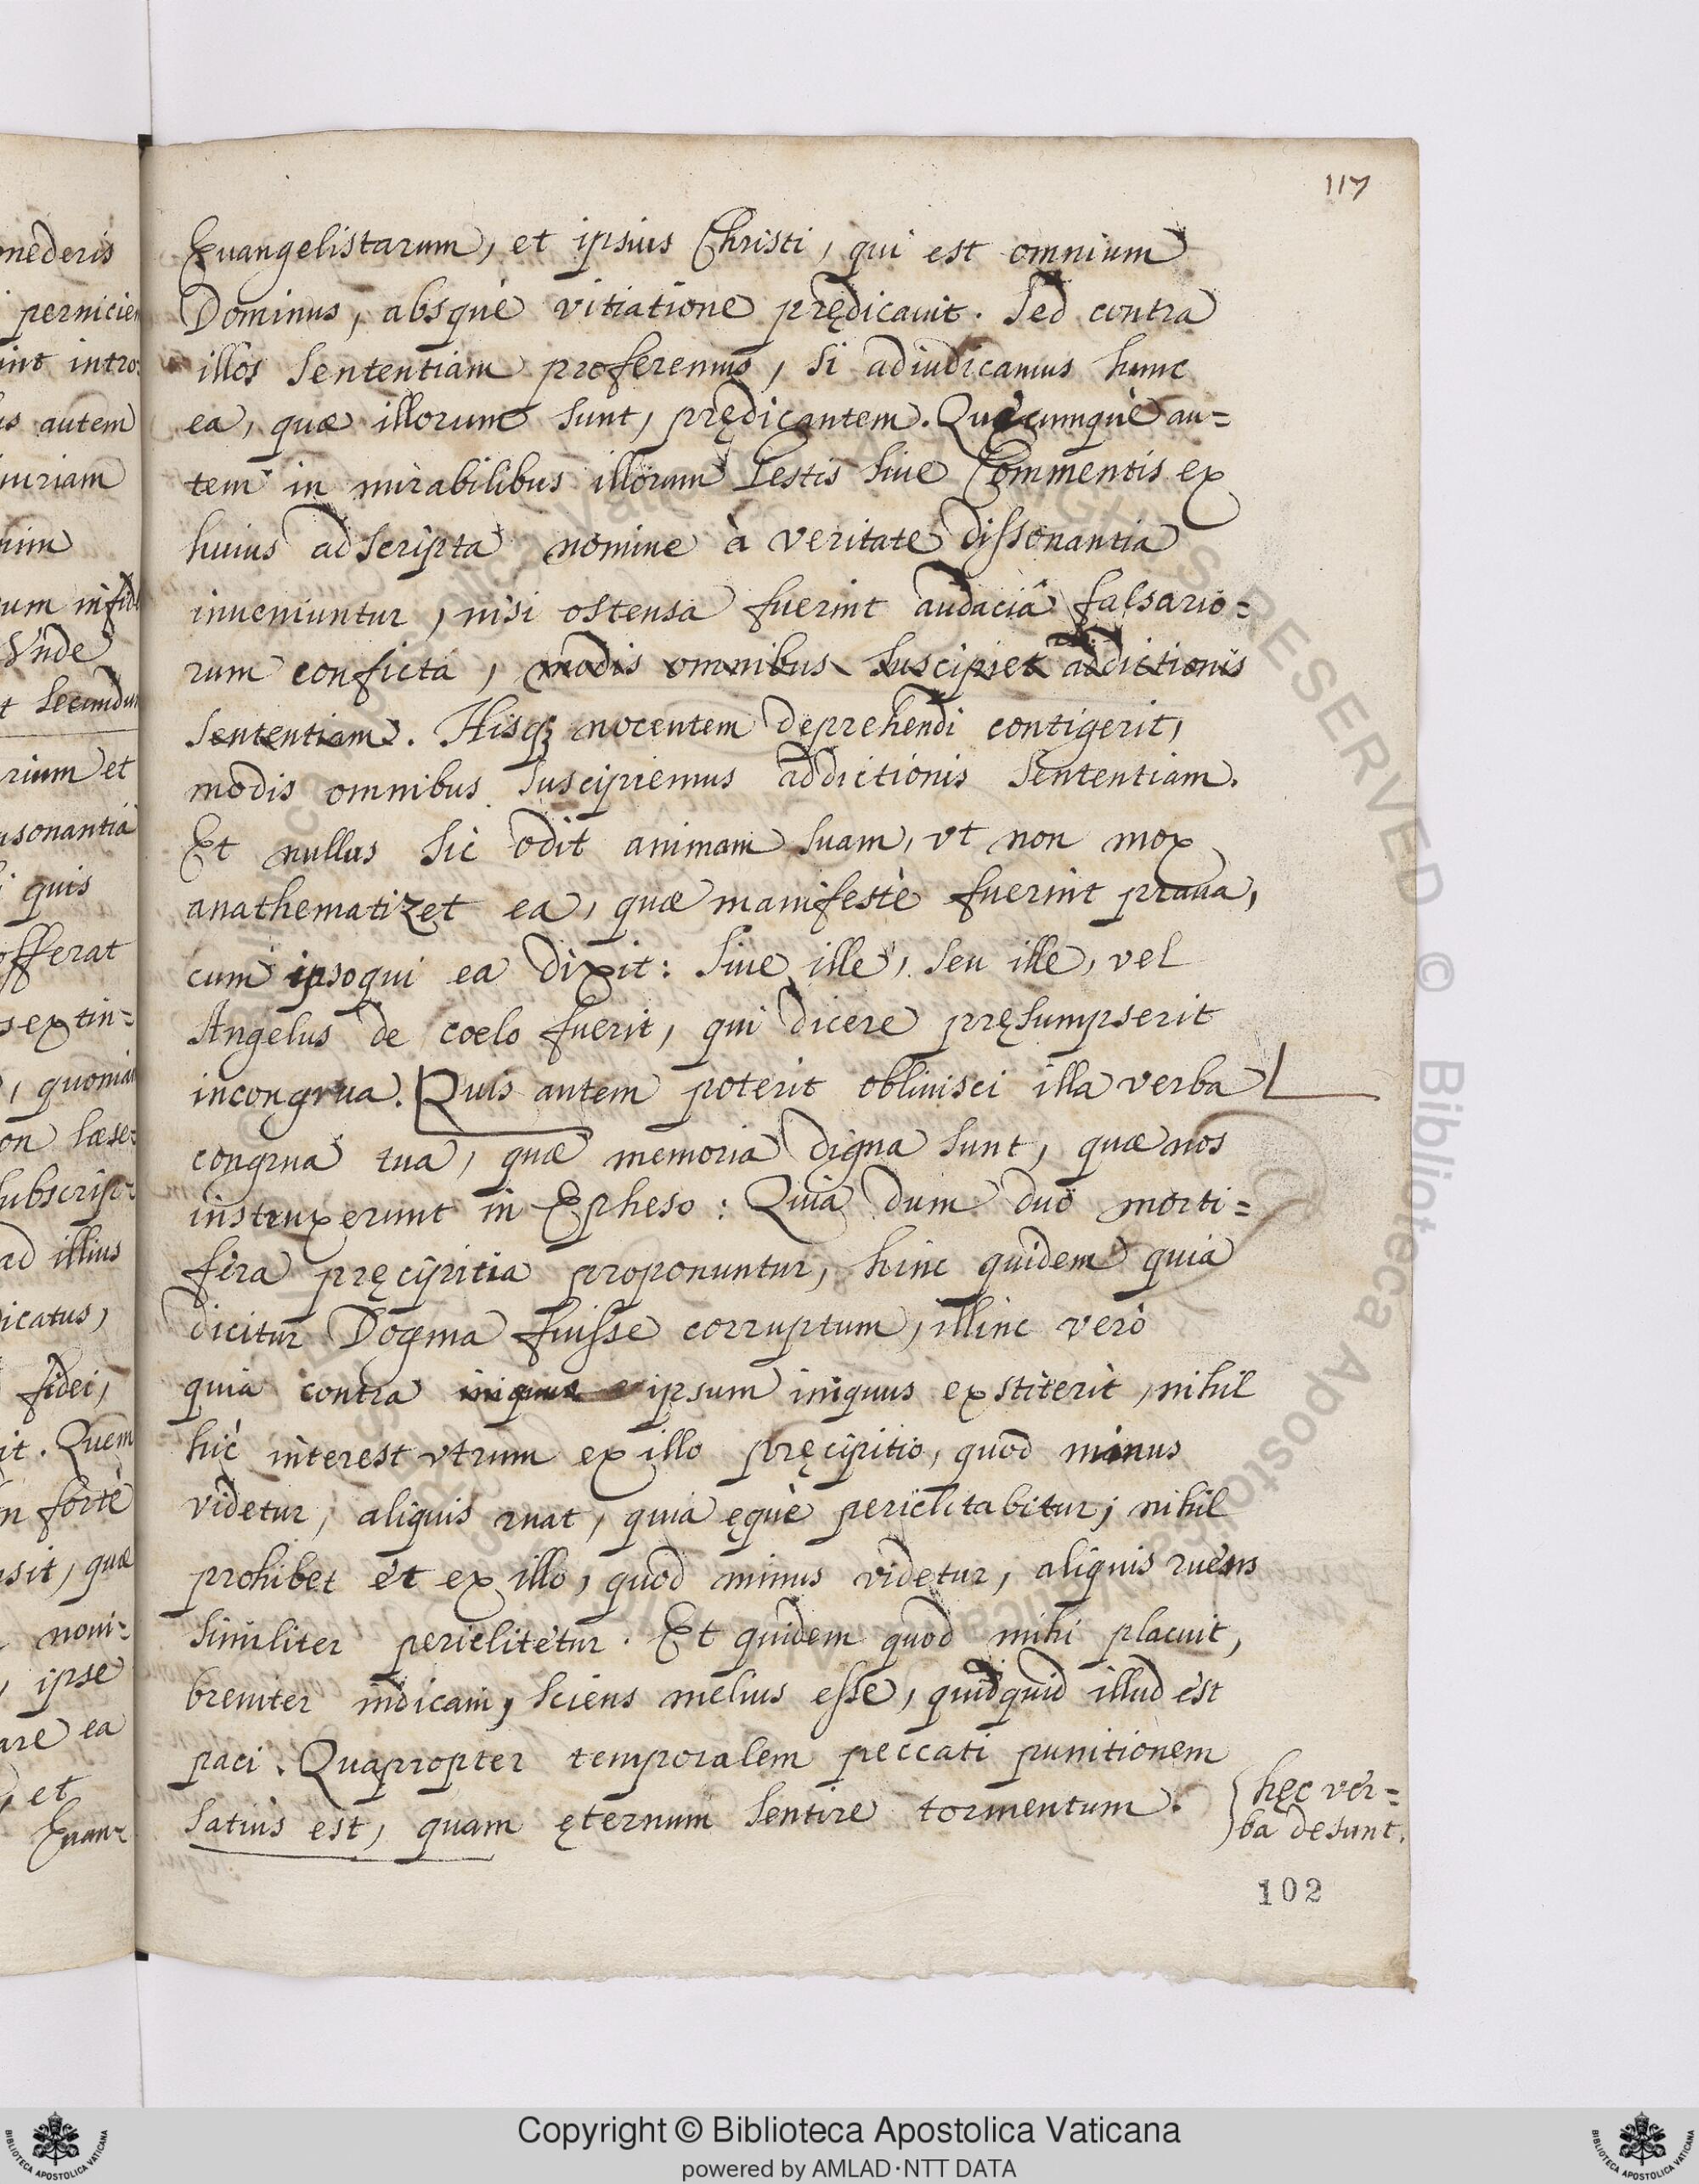 117
Euangelistarum, et ipsius Christi, qui est omnium
Dominus, absquè vitiatione prędicauit. Sed contra
illos sententiam proferemus, si adiudicamus hunc
ea, quæ illorum sunt, prędicantem. Quęcumquè au=
tem in mirabilibus illorum Gestis siue Commentis ex
huius adscripta nomine à veritate dissonantia
inueniuntur, nisi ostensa fuerint audaciâ falsario=
rum conficta, modis omnibus suscipiet addictionis
sententiam. Hisq; nocentem deprehendi contigerit,
modis omnibus suscipiemus addictionis sententiam.
Et nullus sic odit animam suam, vt non mox
anathematizet ea, quæ manifestè fuerint praua,
cum ipsoqui ea dixit: siue ille, seu ille, vel
Angelus de coelo fuerit, qui dicere pręsumpserit
incongrua. Quis autem poterit obliuisci illa verba
congrua tua, quæ memoria digna sunt, quæ nos
instruxerunt in Epheso: Quia dum duo morti=
fera pręcipitia proponuntur, hinc quidem quia
dicitur Dogma fuisse corruptum, illinc verò
quia contra iniquus ipsum iniquus exstiterit, nihil
hic interest vtrum ex illo pręcipitio, quod minus
videtur, aliquis ruat, quia ęquè periclitabitur; nihil
prohibet et ex illo, quod minus videtur, aliquis ruens
similiter periclitetur. Et quidem quod mihi placuit,
breuiter indicaui, sciens melius esse, quidquid illud est
paci. Quapropter temporalem peccati punitionem
satius est, quam ęternum sentire tormentum.
hęc ver=
ba desunt.
102
mederis
perniciem
int intro
s autem
iuriam
nim
um infid
Vnde
t secundu
rium et
sonantia
i quis
offerat
s extin=
, quoniam
on læse=
subscrip=
ad illius
dicatus,
fidei,
it. Quem
n fortè
sit, quæ
noui=
, ipse
are ea
, et
Euan=
Copyright © Biblioteca Apostolica Vaticana
powered by AMLAD·NTT DATA
BIBLIOTECA APOSTOLICA VATICANA
BIBLIOTECA APOSTOLICA VATICANA